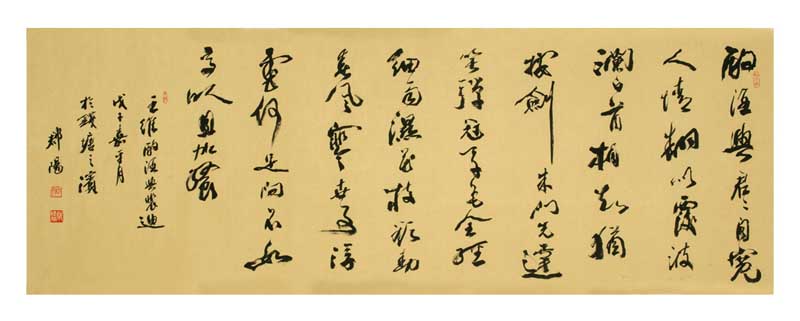 酌酒與君々自寬
人情翻似覆波
瀾白首相知猶
按劍朱門先達
笑彈冠草色全經
細雨濕花枝欲動
春風寒世事浮
雲何足問不如
高臥且加餐
王維酌酒與裴迪
戊子嘉平月
於塘之濱